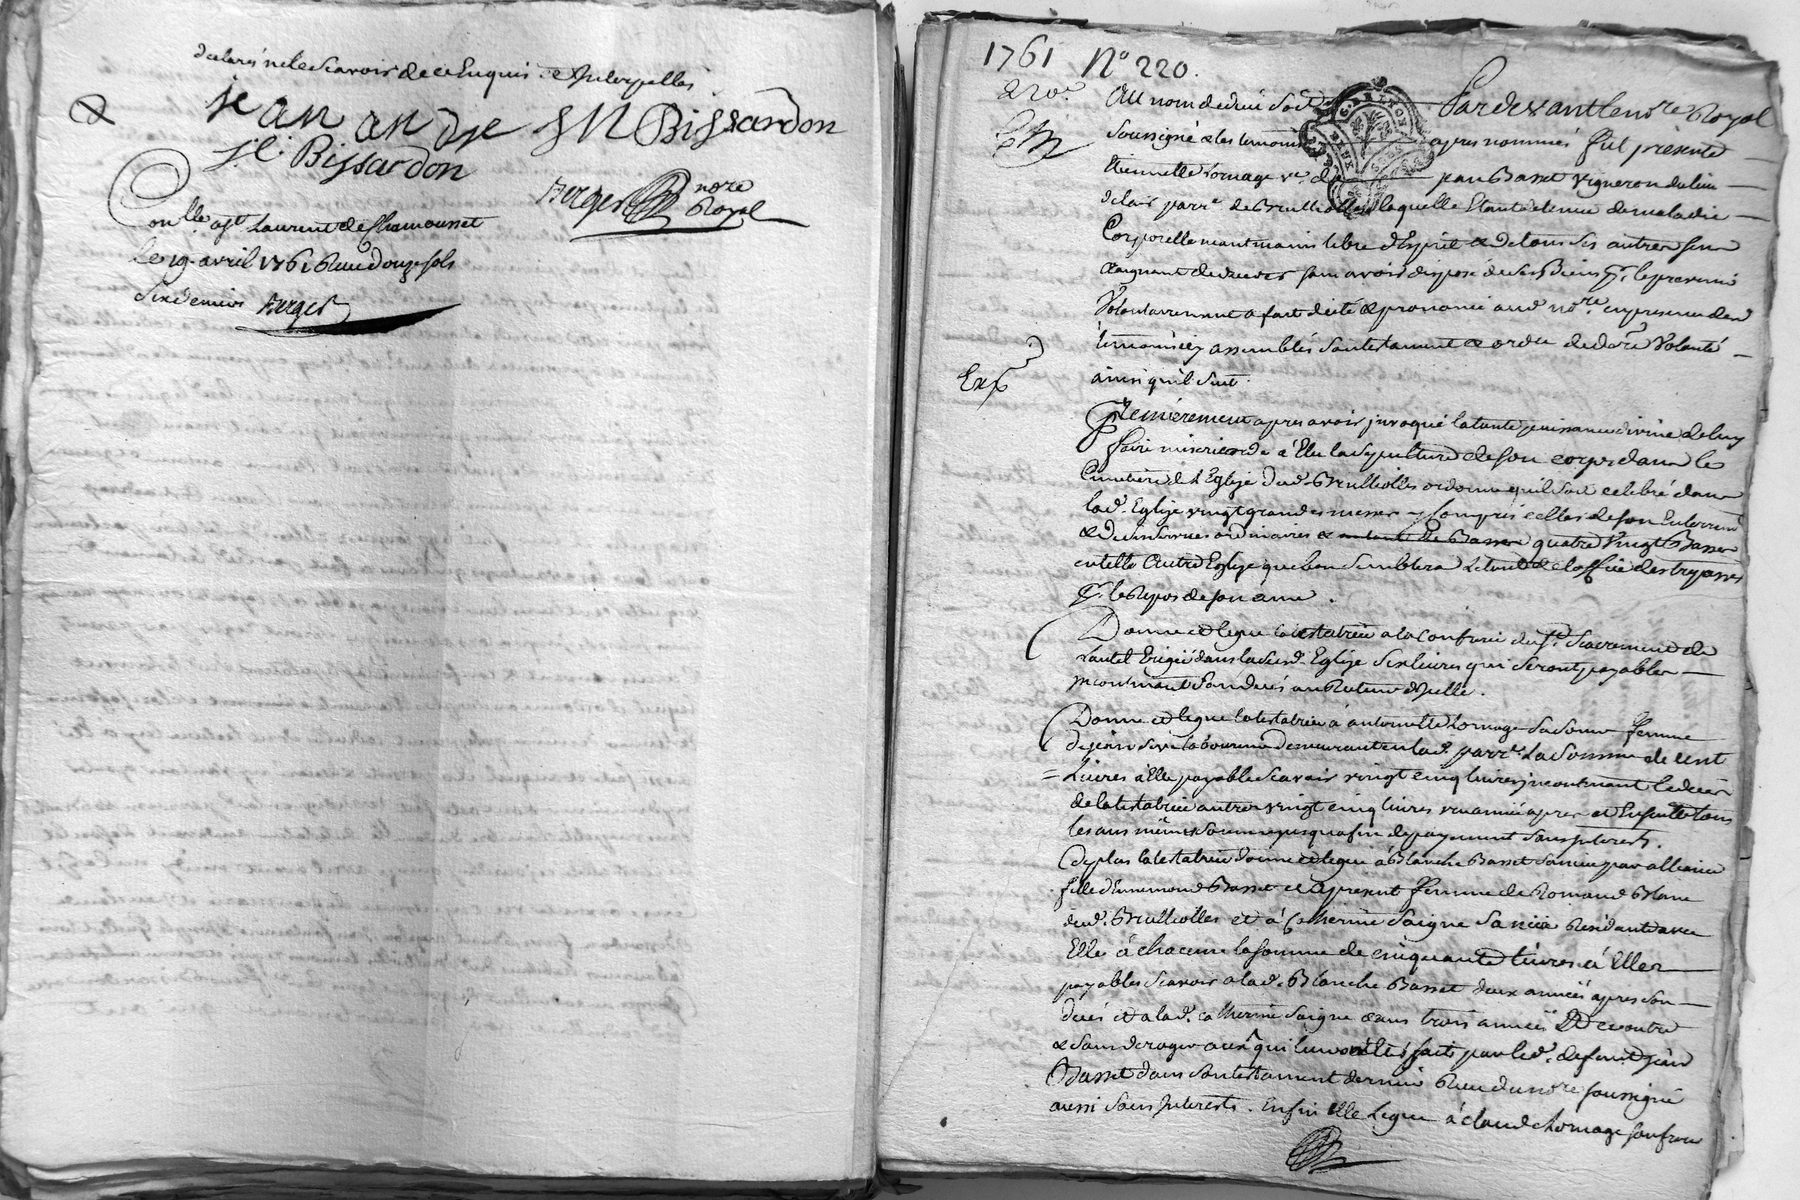 declaré ne le Scavoir de ce Enquis et Interpellés
jean andre J M Bissardon
J C. Bissardon
Berger nore Royal
Conlle. a St Laurent de Chamousset
le 19 avril 1761 Recu douze sols
Six deniers Berger
1761 No 220.
220e
Au nom de dieu soit Pardevant le nore Royal
soussigné & les temoins apres nommés fut presente
Etiennette Lornage ve. de jean Basset vigneron du lieu
parre. de Brulliolles laquelle Etant detenue de maladie
Corporelle neantmoins libre d'Esprit & de tous ses autres sens
Craignant de deceder sans avoir disposé de ses Biens pr. le prevenir
Volontairement a fait dicté & prononcé aud nore. en presence des
temoins icy assemblés son testament & ordre de dere Volonté
ainsi qu'il suit
Exp
Premierement apres avoir jnvoqué la toute puissance divine de luy
faire misericorde a Elle la sepulture de son corps dans le
Cimetiere de l'Eglise dud. Brulliolles ordonne quil soit celebré dans
lad. Eglise vingt grandes messes y compris celles de son Enterrement
& Des Services ordinaires & quatre Vingt Basses
en telle Autre Eglise que bon Semblera Le tout de l'office des trepassés
pr. le Repos de son ame.
Donne et legue la testatrice a la Confrerie du St. Sacrement de
Lautel Erigée dans la Susd. Eglise Six livres qui Seront payables
jncontinant Son decés au Recteur d'Icelle.
Donne et legue la testatrice à antoinette Lornage Sa Soeur femme
de jean laboureur demeurant en lad. parre. La Somme de cent
Livres à Elle payable Scavoir vingt cinq livres jncontinant le decés
de la testatrice autres vingt cinq livres une année apres et Ensuitte tous
les ans même Somme jusqua fin de payement sans jnterets.
De plus la testatrice donne et legue à Blanche Basset Sa niece par alliance
fille d'Ennemond Basset et a present femme de Romand Blanc
dud. Brulliolles et à Catherine Saigne Sa niece Residante avec
Elle à chacune la Somme de cinquante livres à Elles
payables Scavoir a lad. Blanche Basset deux années apres Son
decés et a lad. Catherine Saigne dans trois années Et ce outre
& sans deroger aux qui leur ont été faits par led. defunt jean
Basset dans Son testament dernier Recu du nore soussigné
aussi Sans Interests. Enfin Elle Legue à claude Lornage son frere